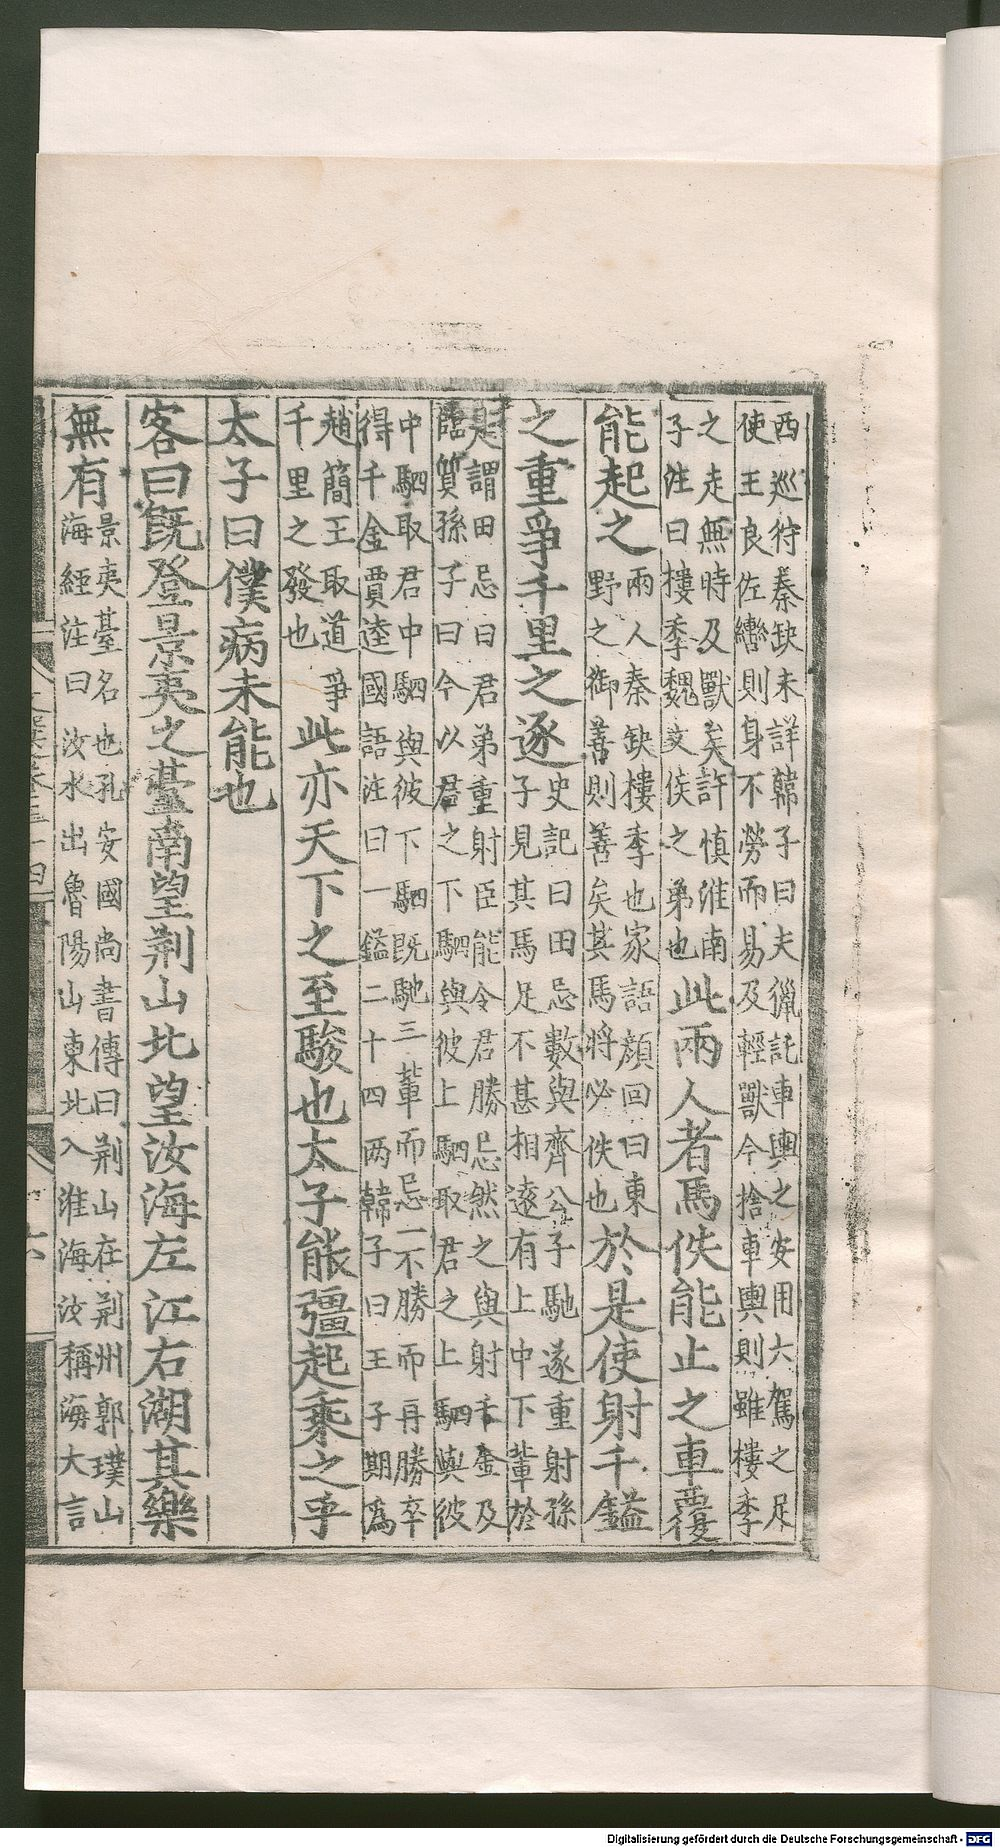 西巡狩秦缺未詳韓子曰夫獵託車輿之安用六駕之足
使王良佐轡則身不勞而易及輕獸今捨車輿則雖樓季
之走無時及獸矣許慎淮南
子注曰樓季魏文侯之弟也此兩人者馬佚能止之車覆
能起之兩人秦缺樓季也家語顏回曰東
野之御善則善矣其馬將必佚也於是使射千鎰
之重爭千里之逐史記曰田忌數與齊公子馳逐重射孫
子見其馬足不甚相遠有上中下輩於
是謂田忌曰君弟重射臣能令君勝忌然之與射千金及
臨質孫子曰今以君之下駟與彼上駟取君之上駟與彼
中駟取君中駟與彼下駟既馳三輩而忌一不勝而再勝卒
得千金賈逵國語注曰一鎰二十四兩韓子曰王子期為
趙簡王取道爭
千里之發也此亦天下之至駿也太子能彊起乘之乎
太子曰僕病未能也
客曰既登景夷之臺南望荆山北望汝海左江右湖其樂
無有景夷臺名也孔安國尚書傳曰荆山在荆州郭璞山
海經注曰汝水出魯陽山東北入淮海汝稱海大言
Digitalisierung gefördert durch die Deutsche Forschungsgemeinschaft - DFG